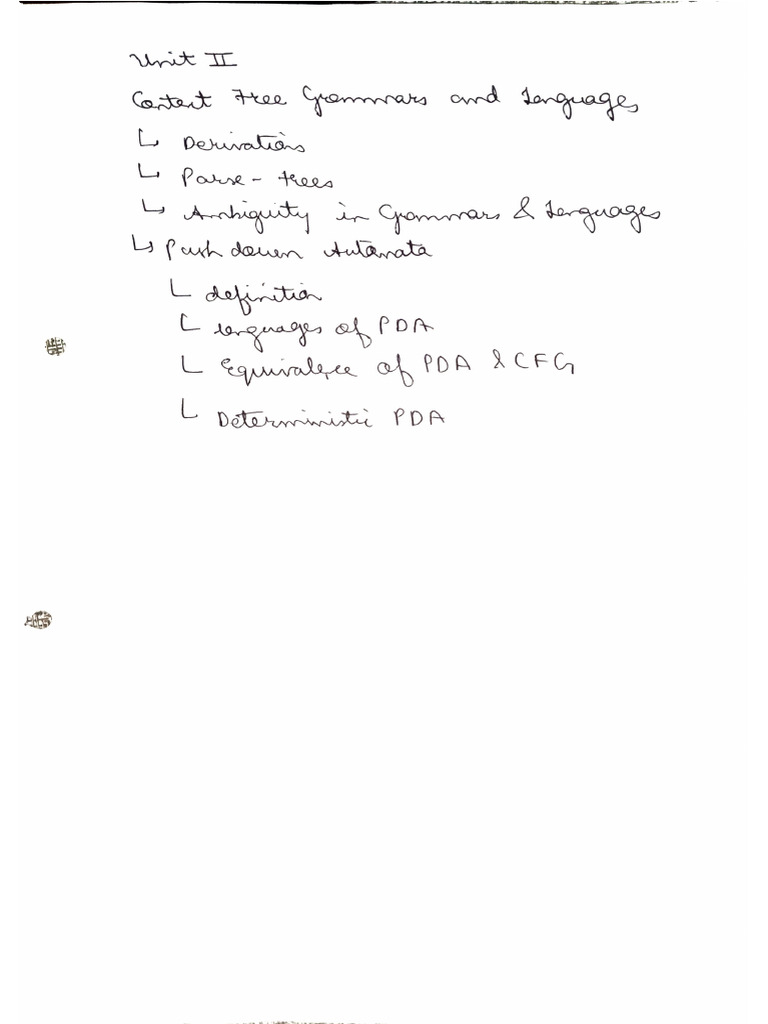 Unit II
Context Free Grammars and Languages
↳ Derivations
↳ Parse - trees
↳ Ambiguity in Grammars & Languages
↳ Push down Automata
↳ definition
↳ languages of PDA
↳ Equivalence of PDA & CFG
↳ Deterministic PDA